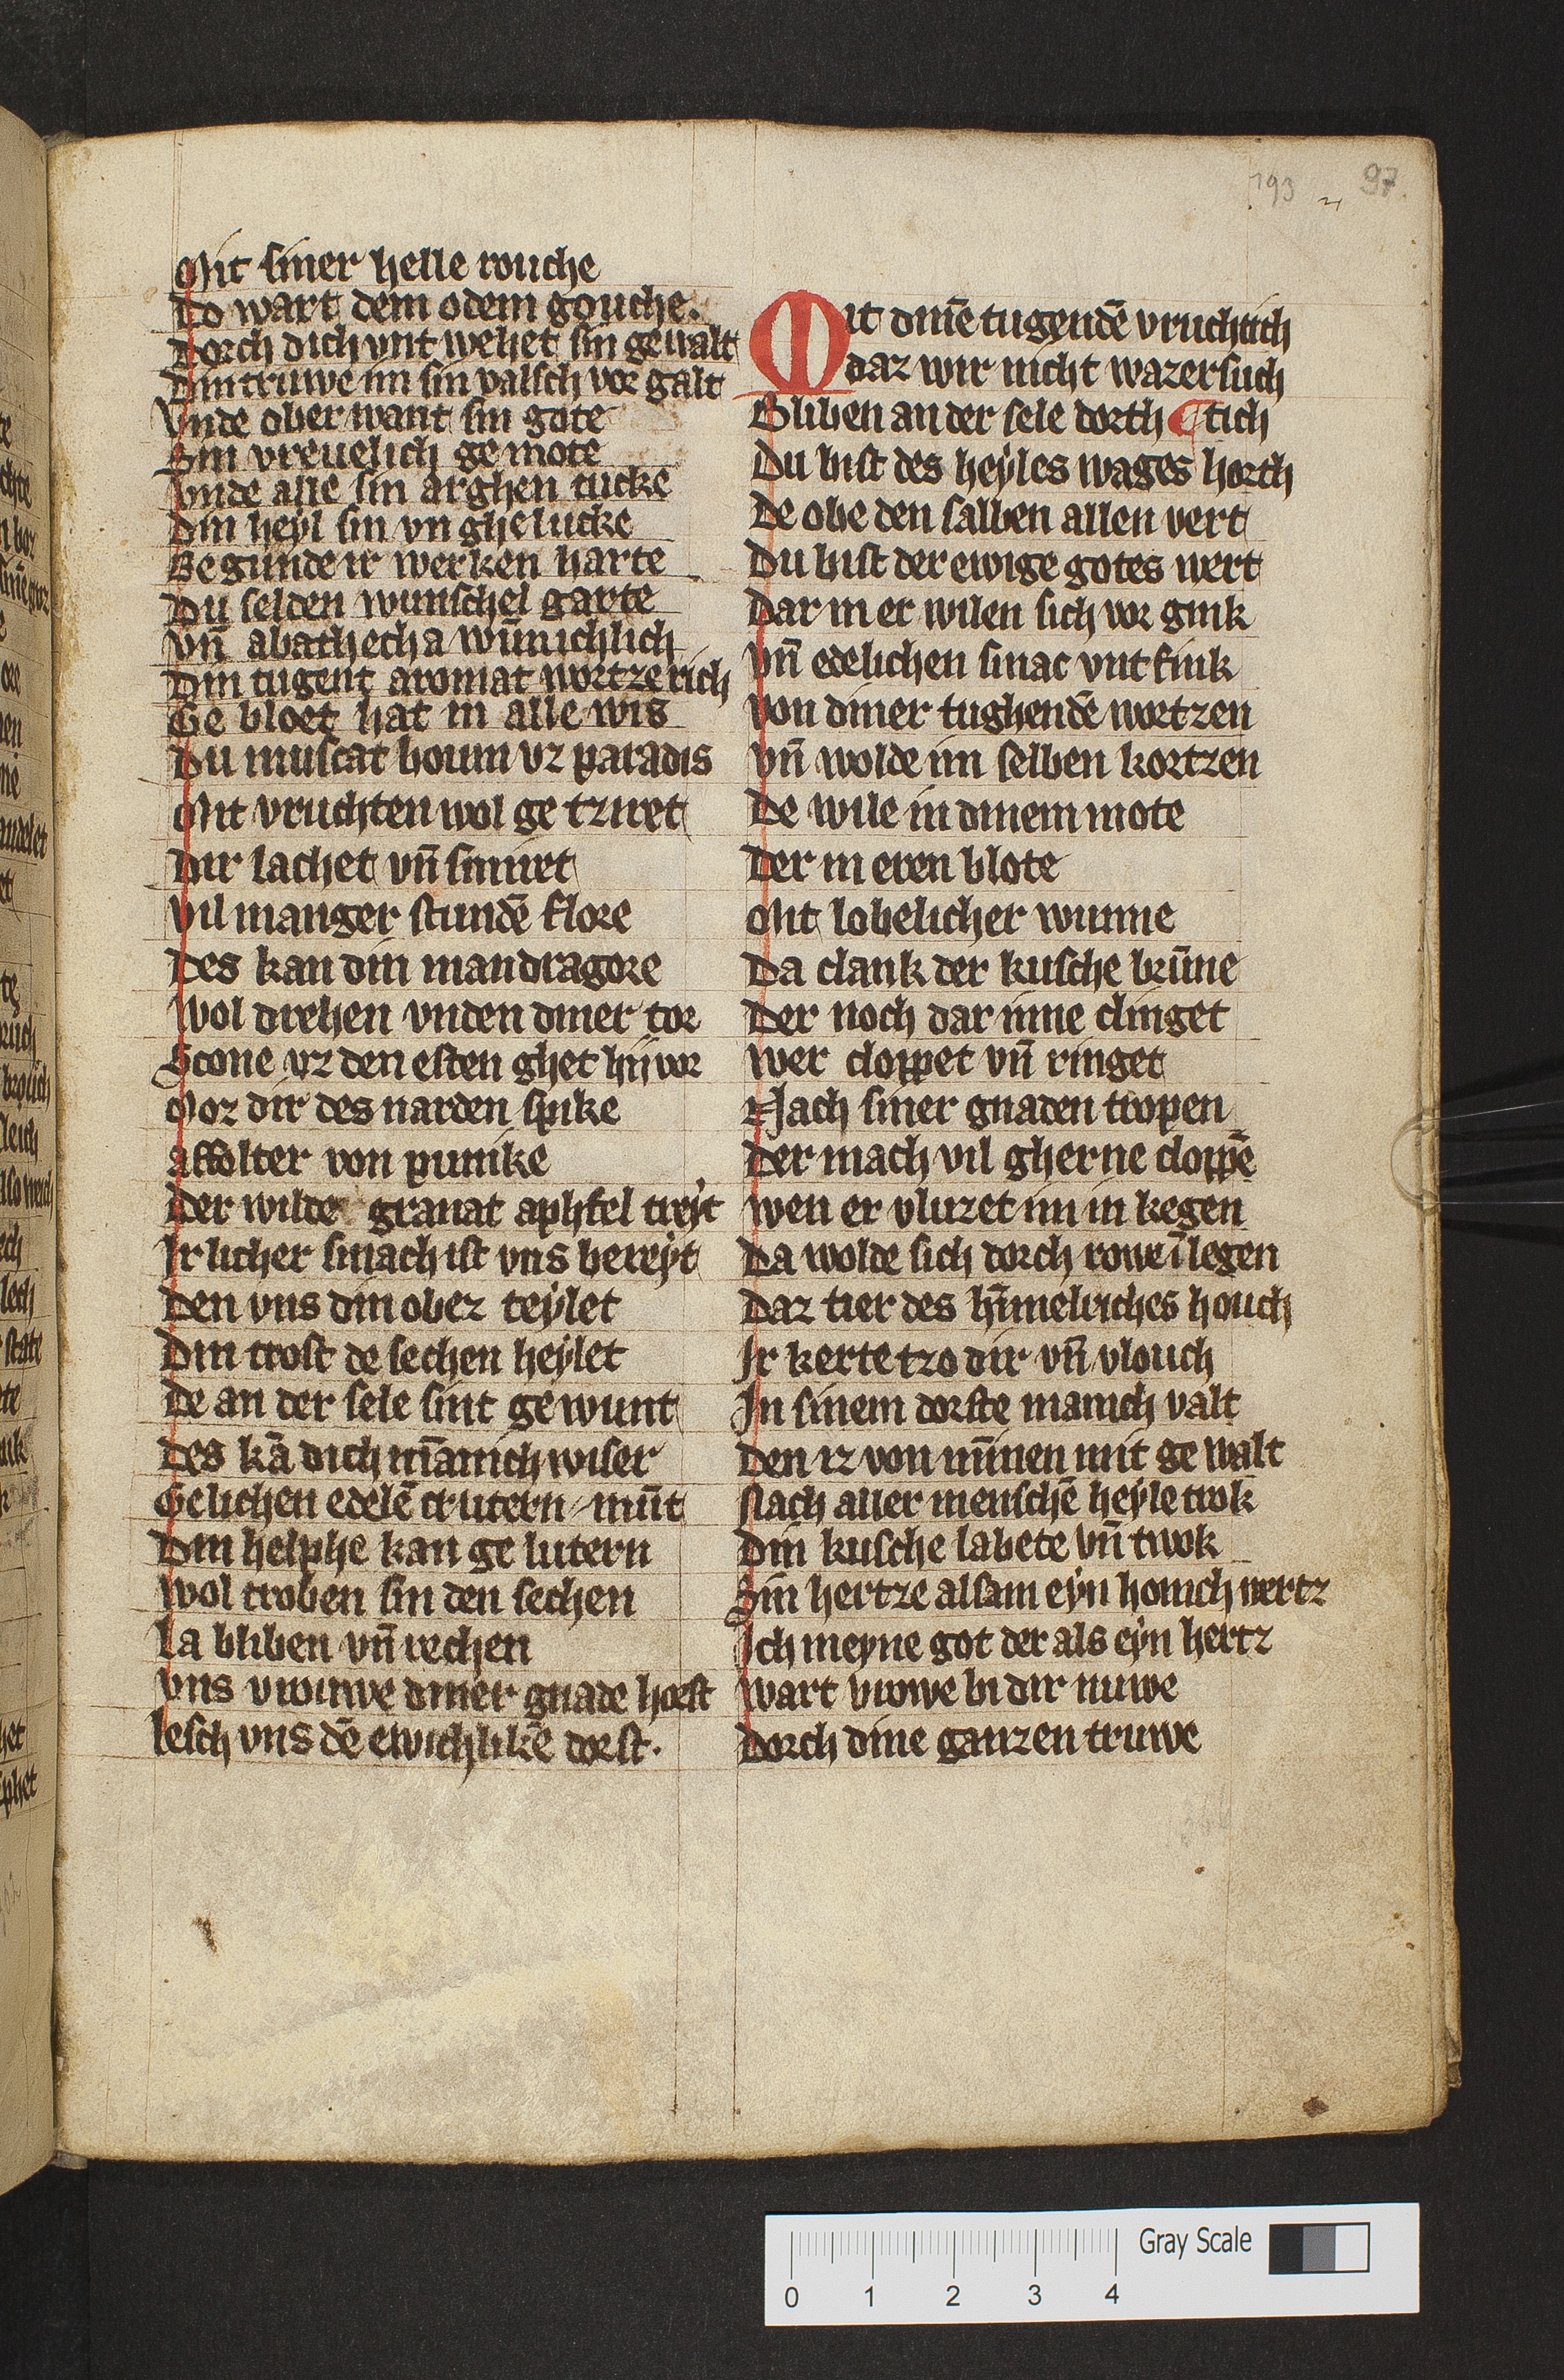 193 97.
Mit siner helle rouche
Do wart dem odem gouche.
Dorch dich vnt wehet sin gewalt
Din truwe im sin valsch vor galt
Vnde ober want sin gote
Sin vreuelich ge mote
Vnde alle sin arghen tucke
Din heyl sin vn ghe lucke
Be gunde ir werken harte
Du selden wunschel garte
vn̄ abathecha wūnichlich
Din tugent aromat wortze rich
Ge bloet hat in alle wis
Du muscat boum vz paradis
Mit vruchten wol ge tziret
Dir lachet vn̄ smiret
Vil manger stundē flore
Des kan din mandragore
Wol drehen vnden diner tor
Scone vz den esten ghet hij vor
Vor dir des narden spike
affolter von punike
Der wilde granat aphfel treyt
Ir licher smach ist vns bereyt
Den vns din obez teylet
Din trost de sechen heylet
De an der sele sint ge wunt
Des kā dich nīmanich wiser
Gelichen edelē crutern mūt
Din helphe kan ge lutern
Wol troben sin den sechen
La bliben vn̄ rechen
Vns vrouwe diner gnade horst
lesch vns dē ewichlikē dorst.
Mit dinē tugendē vruchtich
daz wir nicht wazersuch
Bliben an der sele dorth ¶ tich
Du bist des heyles wages horth
De obe den salben allen vert
Du bist der ewige gotes wert
Dar in er wilen sich vor gink
Vn̄ edelichen smac vnt fink
Von diner tughendē wortzen
Vn̄ wolde im selben kortzen
De wile in dinem mote
Der in eren blote
Mit lobelicher wunne
Da clank der kusche brūne
Der noch dar inne clinget
Wer cloppet vn̄ ringet
Nach siner gnaden tropen
Der mach vil gherne cloppē
Wen er vluzet im in kegen
Da wolde sich dorch rowe ī legen
Daz tier des hīmelriches houch
Ir kerte tzo dir vn̄ vlouch
In sinem dorste manich valt
Den iz von mīnen mit ge walt
Nach aller menschē heyle trok
Din kusche labete vn̄ twok
Sin hertze alsam eyn honich wertz
Ich meyne got der als eyn hertz
Wart vrowe bi dir nuwe
Dorch dine ganzen truwe
Gray Scale
0 1 2 3 4